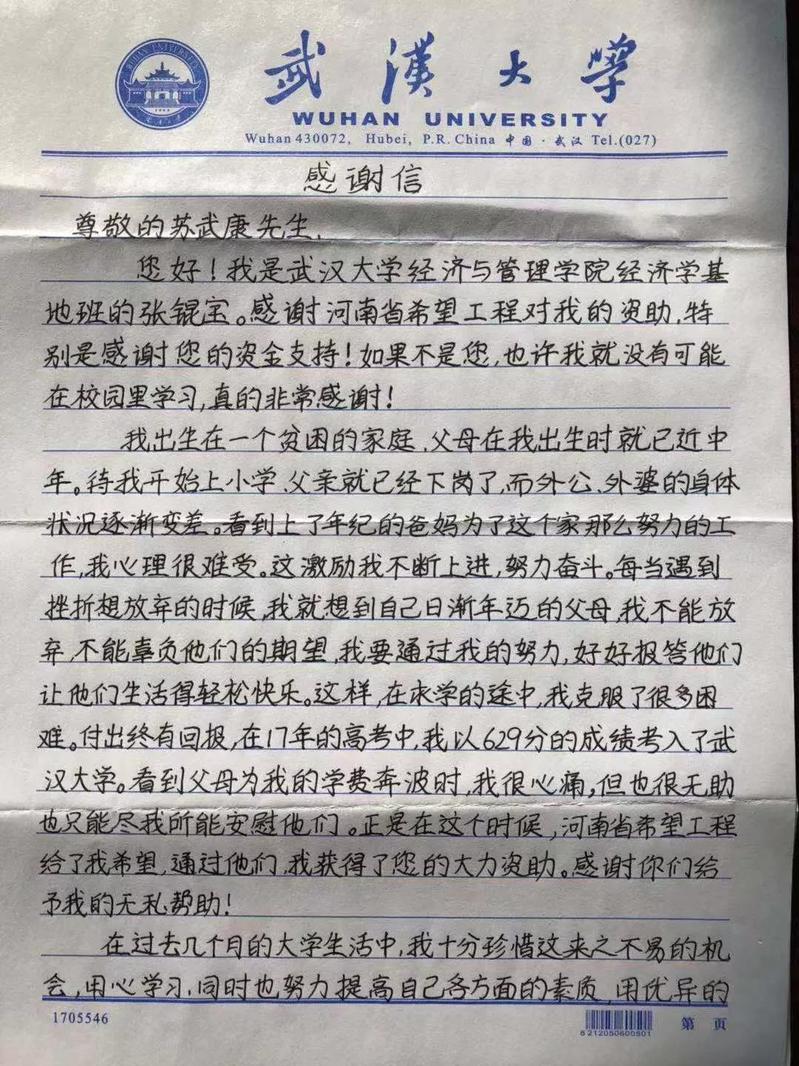 武漢大學
WUHAN UNIVERSITY
Wuhan 430072, Hubei, P.R. China 中国·武汉 Tel.(027)
感谢信
尊敬的苏武康先生、
您好！我是武汉大学经济与管理学院经济学基
地班的张锟宝。感谢河南省希望工程对我的资助,特
别是感谢您的资金支持！如果不是您,也许我就没有可能
在校园里学习,真的非常感谢！
我出生在一个贫困的家庭、父母在我出生时就已近中
年。待我开始上小学、父亲就已经下岗了,而外公、外婆的身体
状况逐渐变差。看到上了年纪的爸妈为了这个家那么努力的工
作,我心理很难受。这激励我不断上进,努力奋斗。每当遇到
挫折想放弃的时候,我就想到自己日渐年迈的父母,我不能放
弃,不能辜负他们的期望,我要通过我的努力,好好报答他们
让他们生活得轻松快乐。这样,在求学的途中,我克服了很多困
难。付出终有回报,在17年的高考中,我以629分的成绩考入了武
汉大学。看到父母为我的学费奔波时,我很心痛,但也很无助
也只能尽我所能安慰他们。正是在这个时候,河南省希望工程
给了我希望,通过他们,我获得了您的大力资助。感谢你们给
予我的无私帮助！
在过去几个月的大学生活中,我十分珍惜这来之不易的机
会,用心学习,同时也努力提高自己各方面的素质,用优异的
1705546
8212050600501
第 页